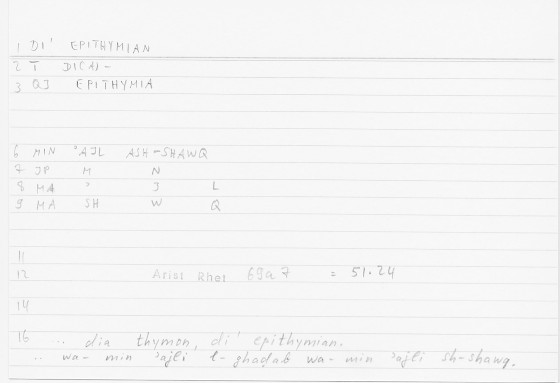 1 DI' EPITHYMIAN
2 T DI(A)-
3 QJ EPITHYMIA
6 MIN ʾAJL ASH-SHAWQ
7 JP M N
8 MA ʾ J L
9 MA SH W Q
11
12 Arist Rhet 69a7 = 51.24
14
16 .. dia thymon, di' epithymian.
.. wa- min ʾajli l-ghaḍab wa- min ʾajli sh-shawq.